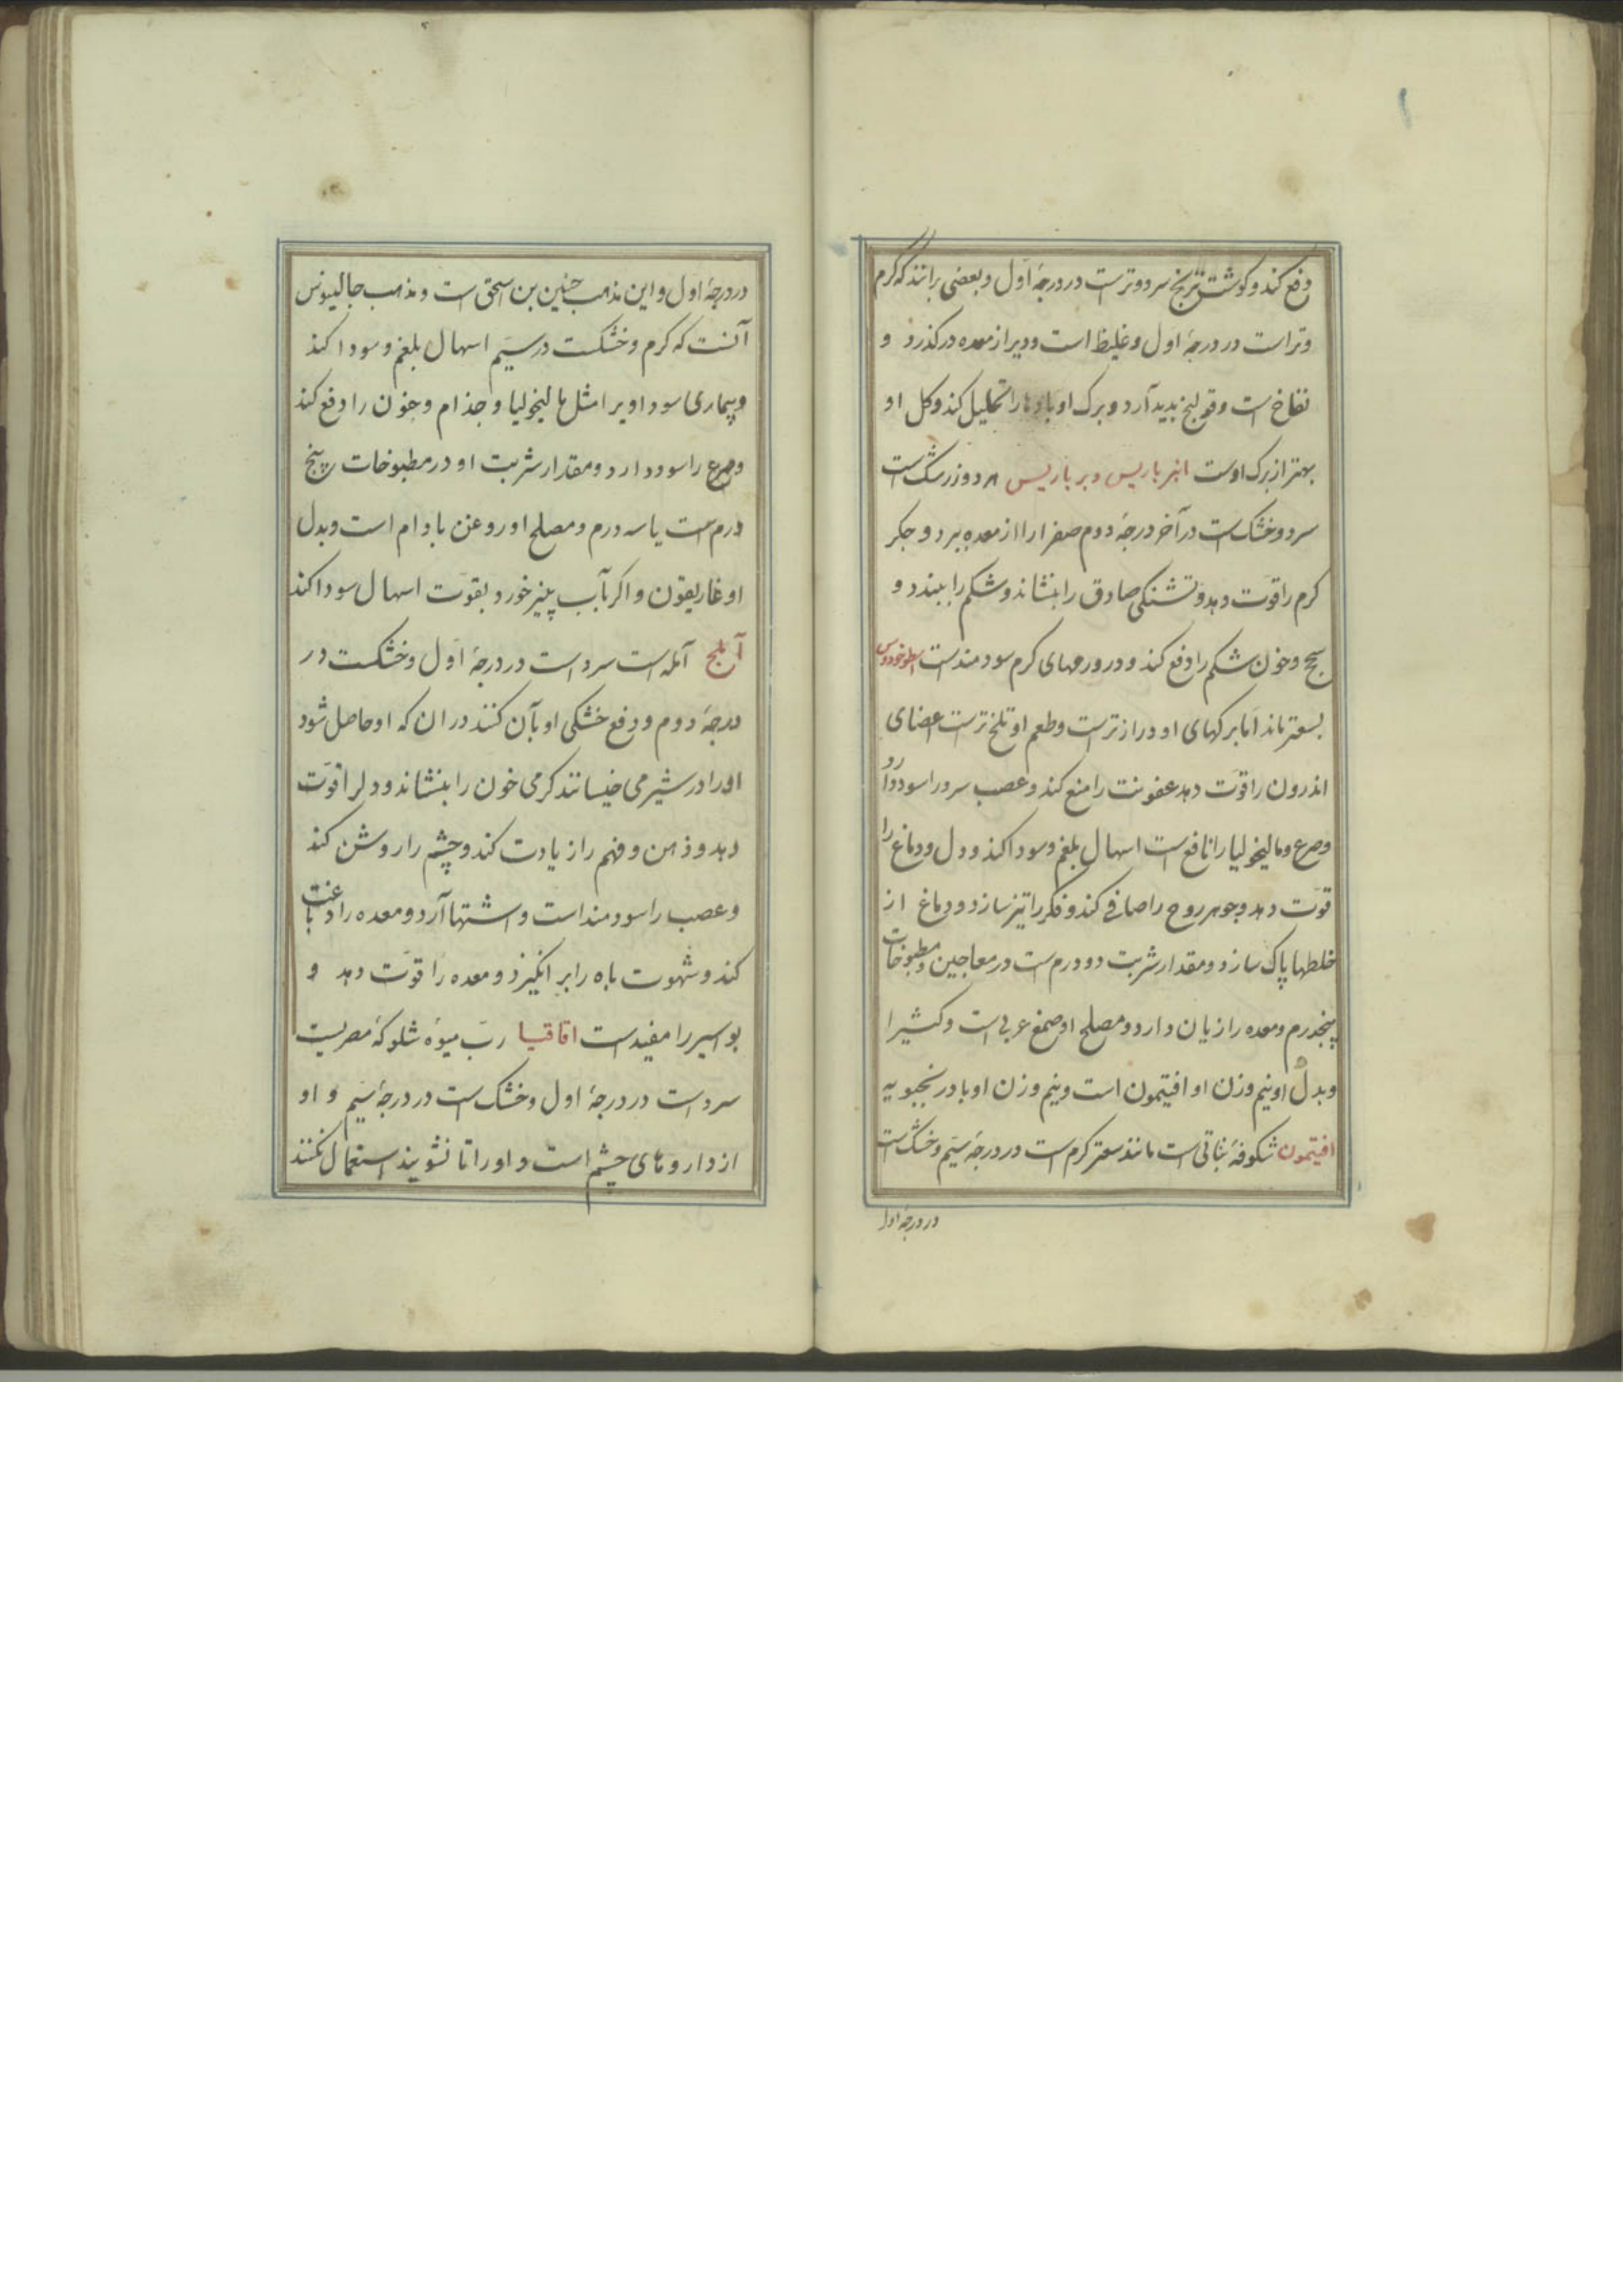 دفع کند و کوشت ترنج سرد و ترست در درجهٔ اوّل و بعضی برانند که کرم
و تر است در درجهٔ اول و غلیظ است و دیر از معده در کذرد و
نفاخ است و قولنج بدید آرد و برک او بادها را تحلیل کند و کل او
بهتر از برک اوست انبرباریس و برباریس هر دو زرشک است
سرد و خشک است در آخر درجهٔ دوم صفرا را از معده ببرد و جکر
کرم را قوّت دهد و تشنکی صادق را بنشاند و شکم را ببندد و
سحج و خون شکم را دفع کند و در ورمهای کرم سودمند است اسطوخودوس
بسعتر ماند اما برکهای او دراز ترست و طعم او تلخ ترست اعضای
اندرون را قوّت دهد عفونت را منع کند و عصب سرد را سود دارد
و صرع و مالیخولیا را نافع است اسهال بلغم و سودا کند و دل و دماغ را
قوّت دهد و جوهر روح را صافی کند و فکر را تیز سازد و دماغ از
خلطها پاک سازد و مقدار شربت دو درم ست در معاجین و مطبوخات
پنجدرم و معده را زیان دارد و مصلح او صمغ عربی است و کثیرا
و بدل او نیم وزن او افتیمون است و نیم وزن او بادرنجبویه
افتیمون شکوفهٔ نباتی است مانند سعتر کرم است در درجهٔ سیّم و خشک است
در درجهٔ اول
در درجهٔ اول و این مذهب حنین بن اسحق است و مذهب جالینوس
آنست که کرم و خشکست در سیّم اسهال بلغم و سودا کند
و بیماری سوداوی را مثل مالیخولیا و جذام و خون را دفع کند
و صرع را سود دارد و مقدار شربت او در مطبوخات پنج
درم ست یا سه درم و مصلح او روغن بادام است و بدل
او غاریقون و اکر بآب پنیر خورد بقوّت اسهال سودا کند
آملج آمله است سرد است در درجهٔ اوّل و خشکست در
درجهٔ دوم و دفع خشکی او بآن کنند در ان که او حاصل شود
او را در شیر می خیسانند کرمی خون را بنشاند و دلرا قوّت
دهد و ذهن و فهم را زیادت کند و چشم را روشن کند
و عصب را سودمند است و اشتها آرد و معده را دباغت
کند و شهوت باه را بر انکیزد و معده را قوّت دهد و
بواسیر را مفید است اقاقیا ربّ میوهٔ شکوکهٔ مصریست
سرد است در درجهٔ اول و خشک است در درجهٔ سیّم و او
از داروهای چشم است و او را تا نشویند استعمال نکنند